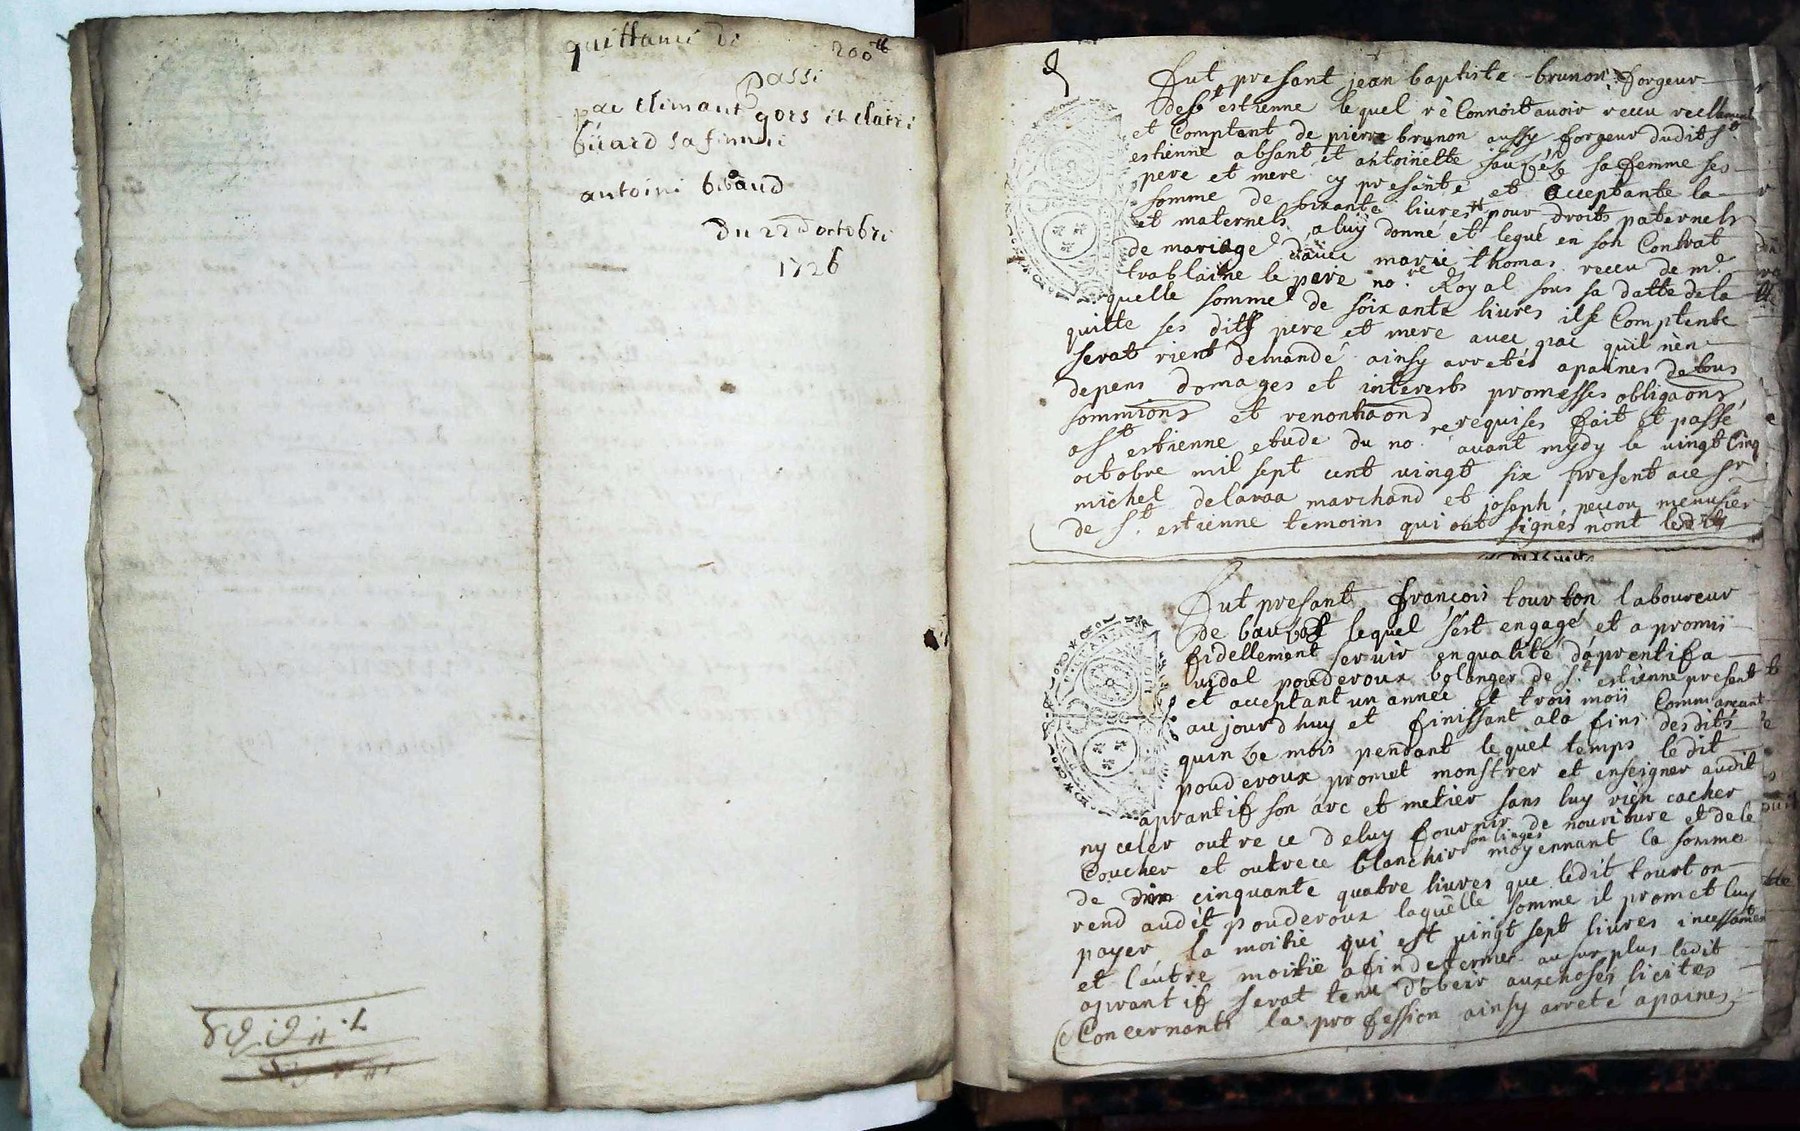 quittance de 200tt
passé
par climant gors et clairi
biard sa femme
antoine bibaud
du 22 d octobre
1726
fut presant jean baptiste brunon forgeur
de St estienne lequel reconnoit avoir receu reellement
et comptant de pierre brunon aussy forgeur dudit St
estienne absant et antoinette sa femme ses
pere et mere cy presante et acceptante la
somme de soixante livres tt pour droits paternels
et maternels a luy donné et legué en son Contrat
de mariage d'avec marie thomas receu de me
trablaine le pere no.re Royal sous sa datte de la
quelle somme de soixante livres il se Comptente
quitte ses dits pere et mere avec pac quil nen
serat rient demandé ainsy arretés apaines de tous
depens domages et interests promesses obligaons
sommions et renontiaons requises fait et passé
a St estienne etude du no.re avant mydy le vingt Cinq
octobre mil sept cent vingt six present a ce Sr
michel delaraa marchand et joseph peccou menusier
de St. estienne temoins qui ont signés nont led
fut presant françois tourton laboureur
de lequel sest engagé et a promis
fidellement servir en qualité daprentif a
vidal pouderoux bolanger de St. estienne present
et acceptant un année et trois mois Commancant
aujourdhuy et finissant a la fins desdits
quinze mois pendant lequel temps ledit
pouderoux promet monstrer et enseigner audit
aprantif son arc et metier sans luy rien cacher
ny celer outre ce deluy fournir de nouriture et de le
Coucher et outre ce blanchir son linges moyennant la somme
de cinquante quatre livres que ledit tourton
rend audit pouderoux laquelle somme il promet luy
payer la moitie qui est vingt sept livres incessament
et l'autre moitie a fin de terme au surplus ledit
aprantif serat tenu d'obeir aux choses licites
Concernants la profession ainsy arreté apaines